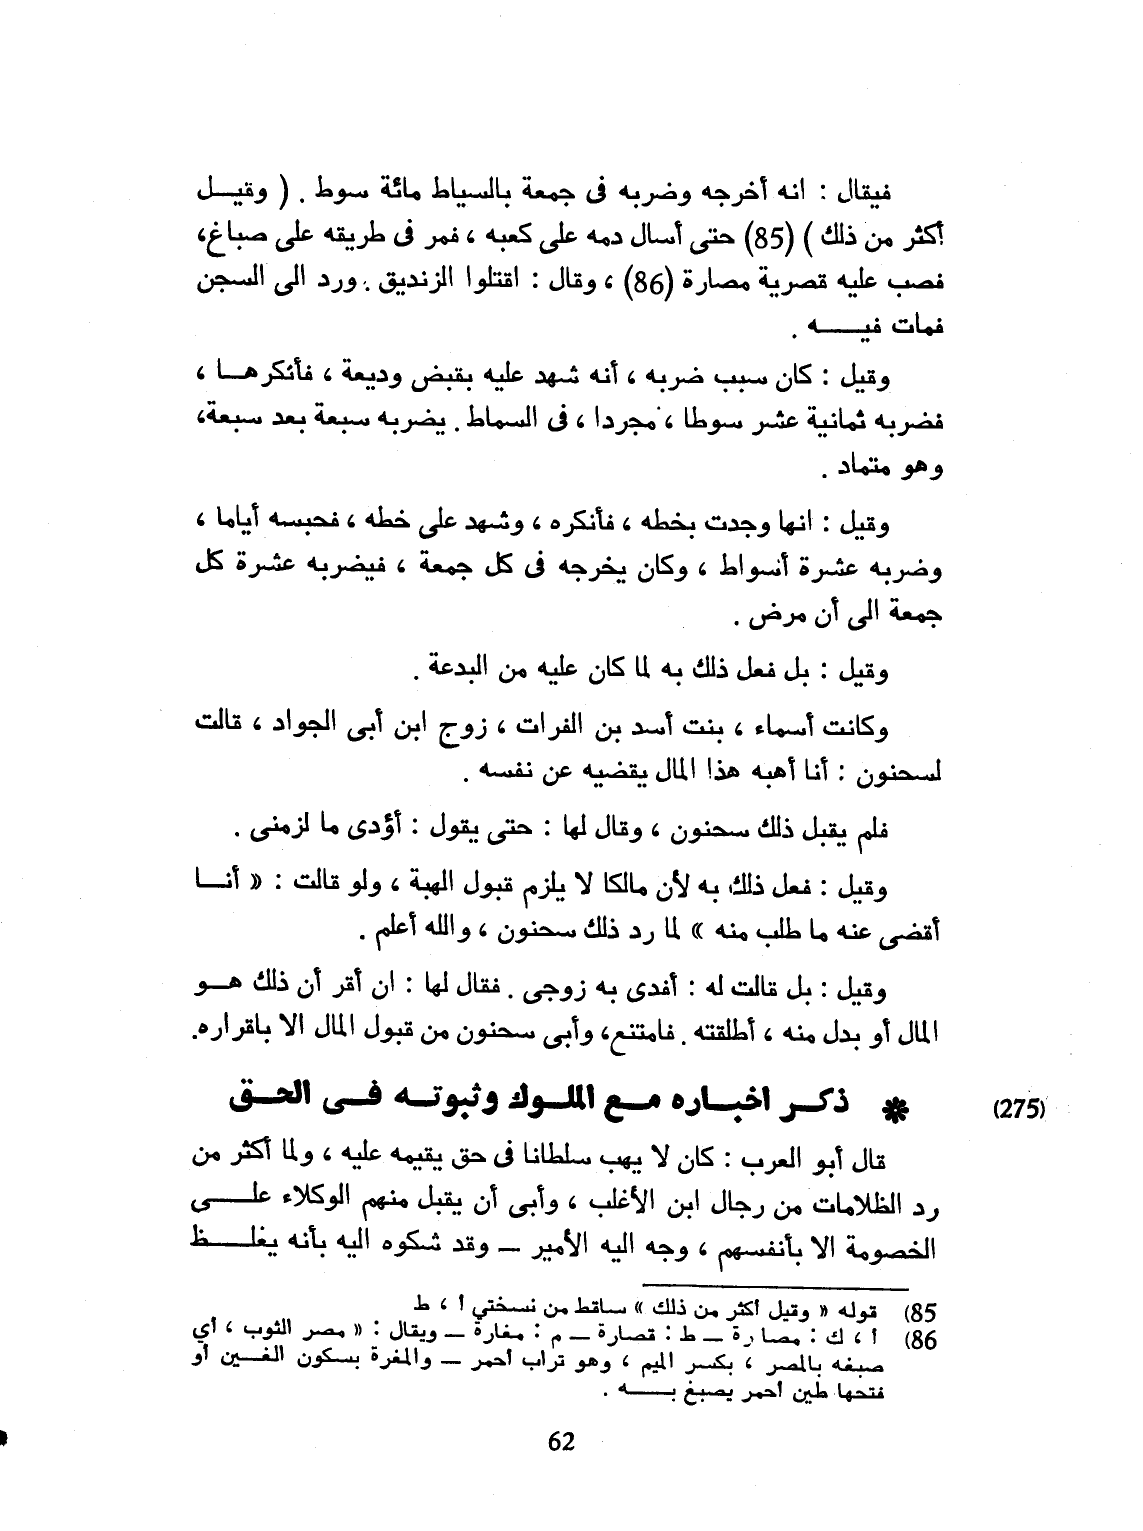 فيقال : انه أخرجه وضربه فى جمعة بالسياط مائة سوط . ( وقيــل
أكثر من ذلك ) (85) حتى أسال دمه على كعبه ، فمر فى طريقه على صباغ،
فصب عليه قصرية مصارة (86) ، وقال : اقتلوا الزنديق . ورد الى السجن
فمات فيـــه .
وقيل : كان سبب ضربه ، أنه شهد عليه بقبض وديعة ، فأنكرهــا ،
فضربه ثمانية عشر سوطا ، مجردا ، فى السماط . يضربه سبعة بعد سبعة،
وهو متماد .
وقيل : انها وجدت بخطه ، فأنكره ، وشهد على خطه ، فحبسه أياما ،
وضربه عشرة أسواط ، وكان يخرجه فى كل جمعة ، فيضربه عشرة كل
جمعة الى أن مرض .
وقيل : بل فعل ذلك به لما كان عليه من البدعة .
وكانت أسماء ، بنت أسد بن الفرات ، زوج ابن أبى الجواد ، قالت
لسحنون : أنا أهبه هذا المال يقضيه عن نفسه .
فلم يقبل ذلك سحنون ، وقال لها : حتى يقول : أؤدى ما لزمنى .
وقيل : فعل ذلك به لأن مالكا لا يلزم قبول الهبة ، ولو قالت : « أنــا
أقضى عنه ما طلب منه » لما رد ذلك سحنون ، والله أعلم .
وقيل : بل قالت له : أفدى به زوجى . فقال لها : ان أقر أن ذلك هــو
المال أو بدل منه ، أطلقته . فامتنع، وأبى سحنون من قبول المال الا باقراره.
(275) * ذكــر اخبــاره مــع الملــوك وثبوتــه فــى الحــق
قال أبو العرب : كان لا يهب سلطانا فى حق يقيمه عليه ، ولما أكثر من
رد الظلامات من رجال ابن الأغلب ، وأبى أن يقبل منهم الوكلاء علــى
الخصومة الا بأنفسهم ، وجه اليه الأمير ــ وقد شكوه اليه بأنه يغلــظ
85) قوله « وقيل أكثر من ذلك » ساقط من نسختي أ ، ط
86) أ ، ك : مصارة ــ ط : قصارة ــ م : مغارة ــ ويقال : « مصر الثوب ، أي
صبغه بالمصر ، بكسر الميم ، وهو تراب أحمر ــ والمغرة بسكون الغــين أو
فتحها طين أحمر يصبغ بــه .
62